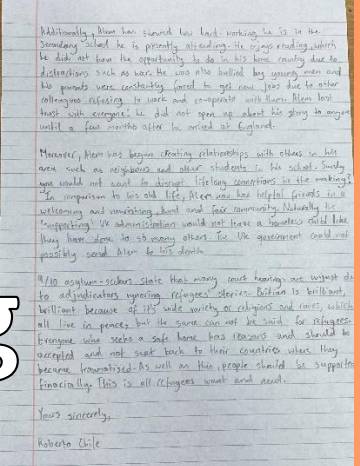 Additionally, Alem has showed how hard-working he is in the
Secondary school he is presently attending. He enjoys reading, which
he did not have the opportunity to do in his home country due to
distractions such as war. He was also bullied by young men and
his parents were constantly forced to get new jobs due to other
colleagues refusing to work and co-operate with them. Alem lost
trust with everyone; he did not open up about his story to anyone
until a few months after he arrived at England.
Moreover, Alem has begun creating relationships with others in his
area such as neighbours and other students in his school. Surely
you would not want to disrupt lifelong connections in the making?
In comparison to his old life, Alem now has helpful friends in a
welcoming and nourishing, kind and fair community. Naturally the
"supporting" UK administration would not leave a homeless child like
they have done to so many others. The UK government could not
possibly send Alem to his death.
9/10 asylum-seekers state that many court hearings are unjust du
to adjudicators ignoring refugees' stories. Britian is brilliant,
brilliant because of it's wide variety of religions and races, which
all live in peace, but the same can not be said for refugees.
Everyone who seeks a safe home has reasons and should be
accepted and not sent back to their countries where they
became traumatised. As well as this, people should be supporte
financially. This is all refugees want and need.
Yours sincerely,
Roberto Chile